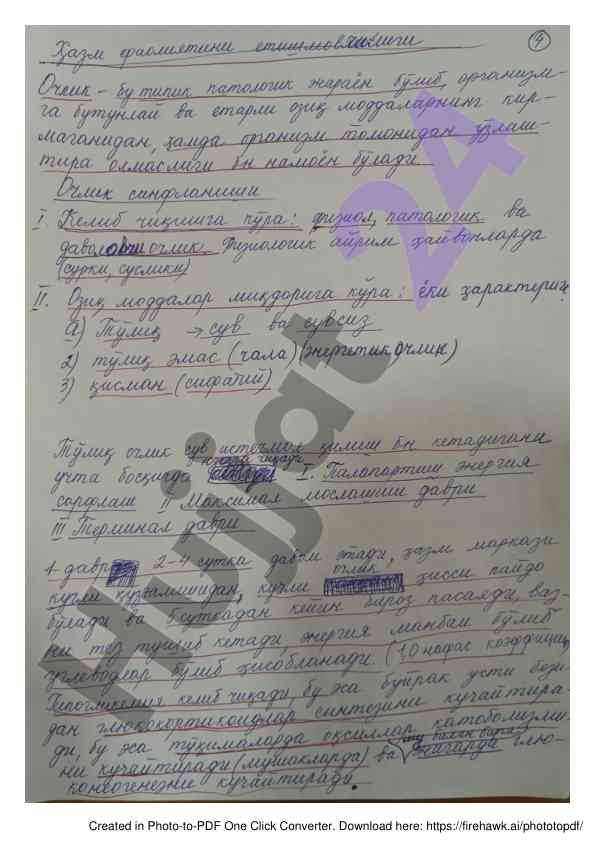 Ҳазм фаолиятини етишмовчилиги
4
Очлик – бу типик патологик жараён бўлиб, организм-
га бутунлай ва етарли озиқ моддаларнинг кир-
маганидан, ҳамда организм томонидан ўзлаш-
тира олмаслиги бн намоён бўлади
Очлик синфланиши
I. Келиб чиқишига кўра: физиол, патологик ва
даволовчи очлик. Физиологик айрим ҳайвонларда
(сурки, суслики)
II. Озиқ моддалар миқдорига кўра: ёки характерига
А) Тўлиқ → сув ва сувсиз
2) тўлиқ эмас (чала) (энергетик очлик)
3) қисман (сифатий)
Тўлиқ очлик сув истеъмол қилиш бн кетадигани
учта босқичда I. Палапартиш энергия
сарфлаш II Максимал мослашиш даври
III Терминал даври
1- давр 2-4 сутка давом этади, ҳазм маркази
кучли қўзғалишидан, кучли очлик ҳисси пайдо
бўлади ва 5 суткадан кейин бироз пасаяди, ваз-
ни тез тушиб кетади, энергия манбаи бўлиб
углеводлар бўлиб ҳисобланади. (10 нафас коэффици
Гипогликемия келиб чиқади, бу эса буйрак усти бези-
дан глюкокортикоидлар синтезини кучайтира-
ди, бу эса тўқималарда оқсиллар катоболизми-
ни кучайтиради (мушакларда) ва шу билан бирга жигарда глю-
конеогенезни кучайтиради.
Hujjat 24
Created in Photo-to-PDF One Click Converter. Download here: https://firehawk.ai/phototopdf/